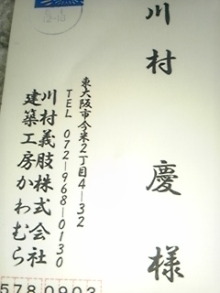 川村 慶 様
東大阪市今米2丁目4-32
TEL 072-968-0130
川村義肢株式会社
建築工房かわむら
5780903